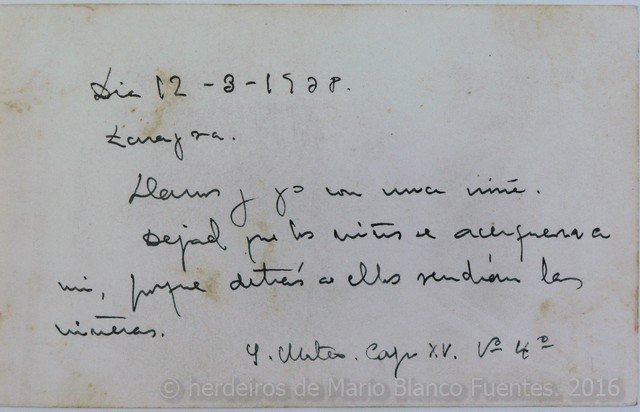 Dia 12-3-1938.
Zaragoza.
Llanos y yo con una niñe.
Dejad que los niños se acerquen a
mi, porque detrás de ellos vendrán las
niñeras.
S. Mateo. Cap. XV. Vº 4º
© herdeiros de Mario Blanco Fuentes. 2016